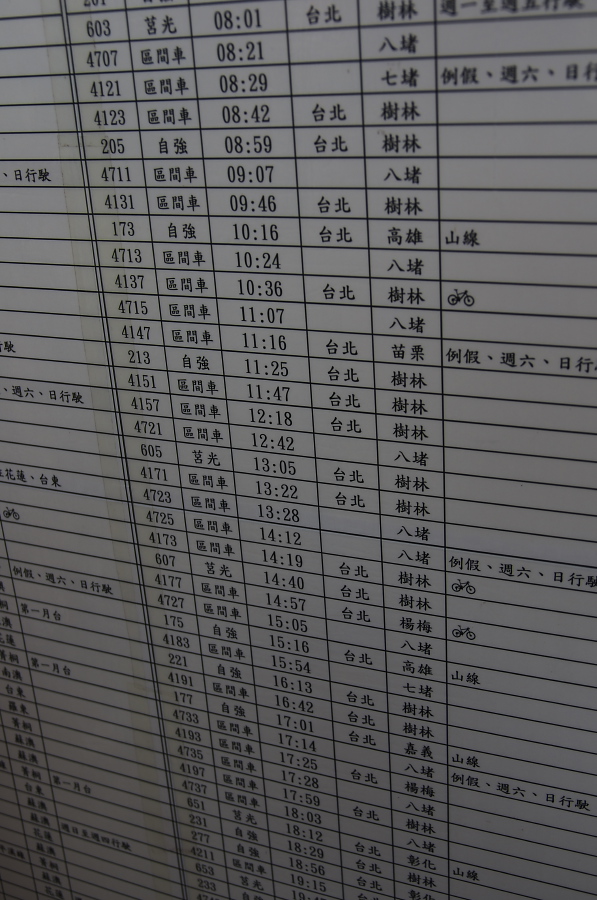 603 莒光 08:01 台北 樹林 週一至週五行駛
4707 區間車 08:21 八堵
4121 區間車 08:29 七堵 例假、週六、日行
4123 區間車 08:42 台北 樹林
205 自強 08:59 台北 樹林
、日行駛 4711 區間車 09:07 八堵
4131 區間車 09:46 台北 樹林
173 自強 10:16 台北 高雄 山線
4713 區間車 10:24 八堵
4137 區間車 10:36 台北 樹林
4715 區間車 11:07 八堵
4147 區間車 11:16 台北 苗栗 例假、週六、日行
213 自強 11:25 台北 樹林
4151 區間車 11:47 台北 樹林
、週六、日行駛 4157 區間車 12:18 台北 樹林
4721 區間車 12:42 八堵
605 莒光 13:05 台北 樹林
4171 區間車 13:22 台北 樹林
花蓮、台東 4723 區間車 13:28 八堵
4725 區間車 14:12 八堵 例假、週六、日行駛
4173 區間車 14:19 台北 樹林
607 莒光 14:40 台北 樹林
例假、週六、日行駛 4177 區間車 14:57 台北 楊梅
4727 區間車 15:05 八堵
第一月台 175 自強 15:16 台北 高雄 山線
4183 區間車 15:54 七堵
第一月台 221 自強 16:13 台北 樹林
4191 區間車 16:42 台北 樹林
177 自強 17:01 台北 嘉義 山線
4733 區間車 17:14 八堵 例假、週六、日行駛
4193 區間車 17:25 台北 楊梅
4735 區間車 17:28 八堵
第一月台 4197 區間車 17:59 台北 樹林
4737 區間車 18:03 八堵
651 莒光 18:12 彰化 山線
231 自強 18:29 樹林
277 自強 18:56 彰化
4211 區間車 19:15
653 莒光
233 自強